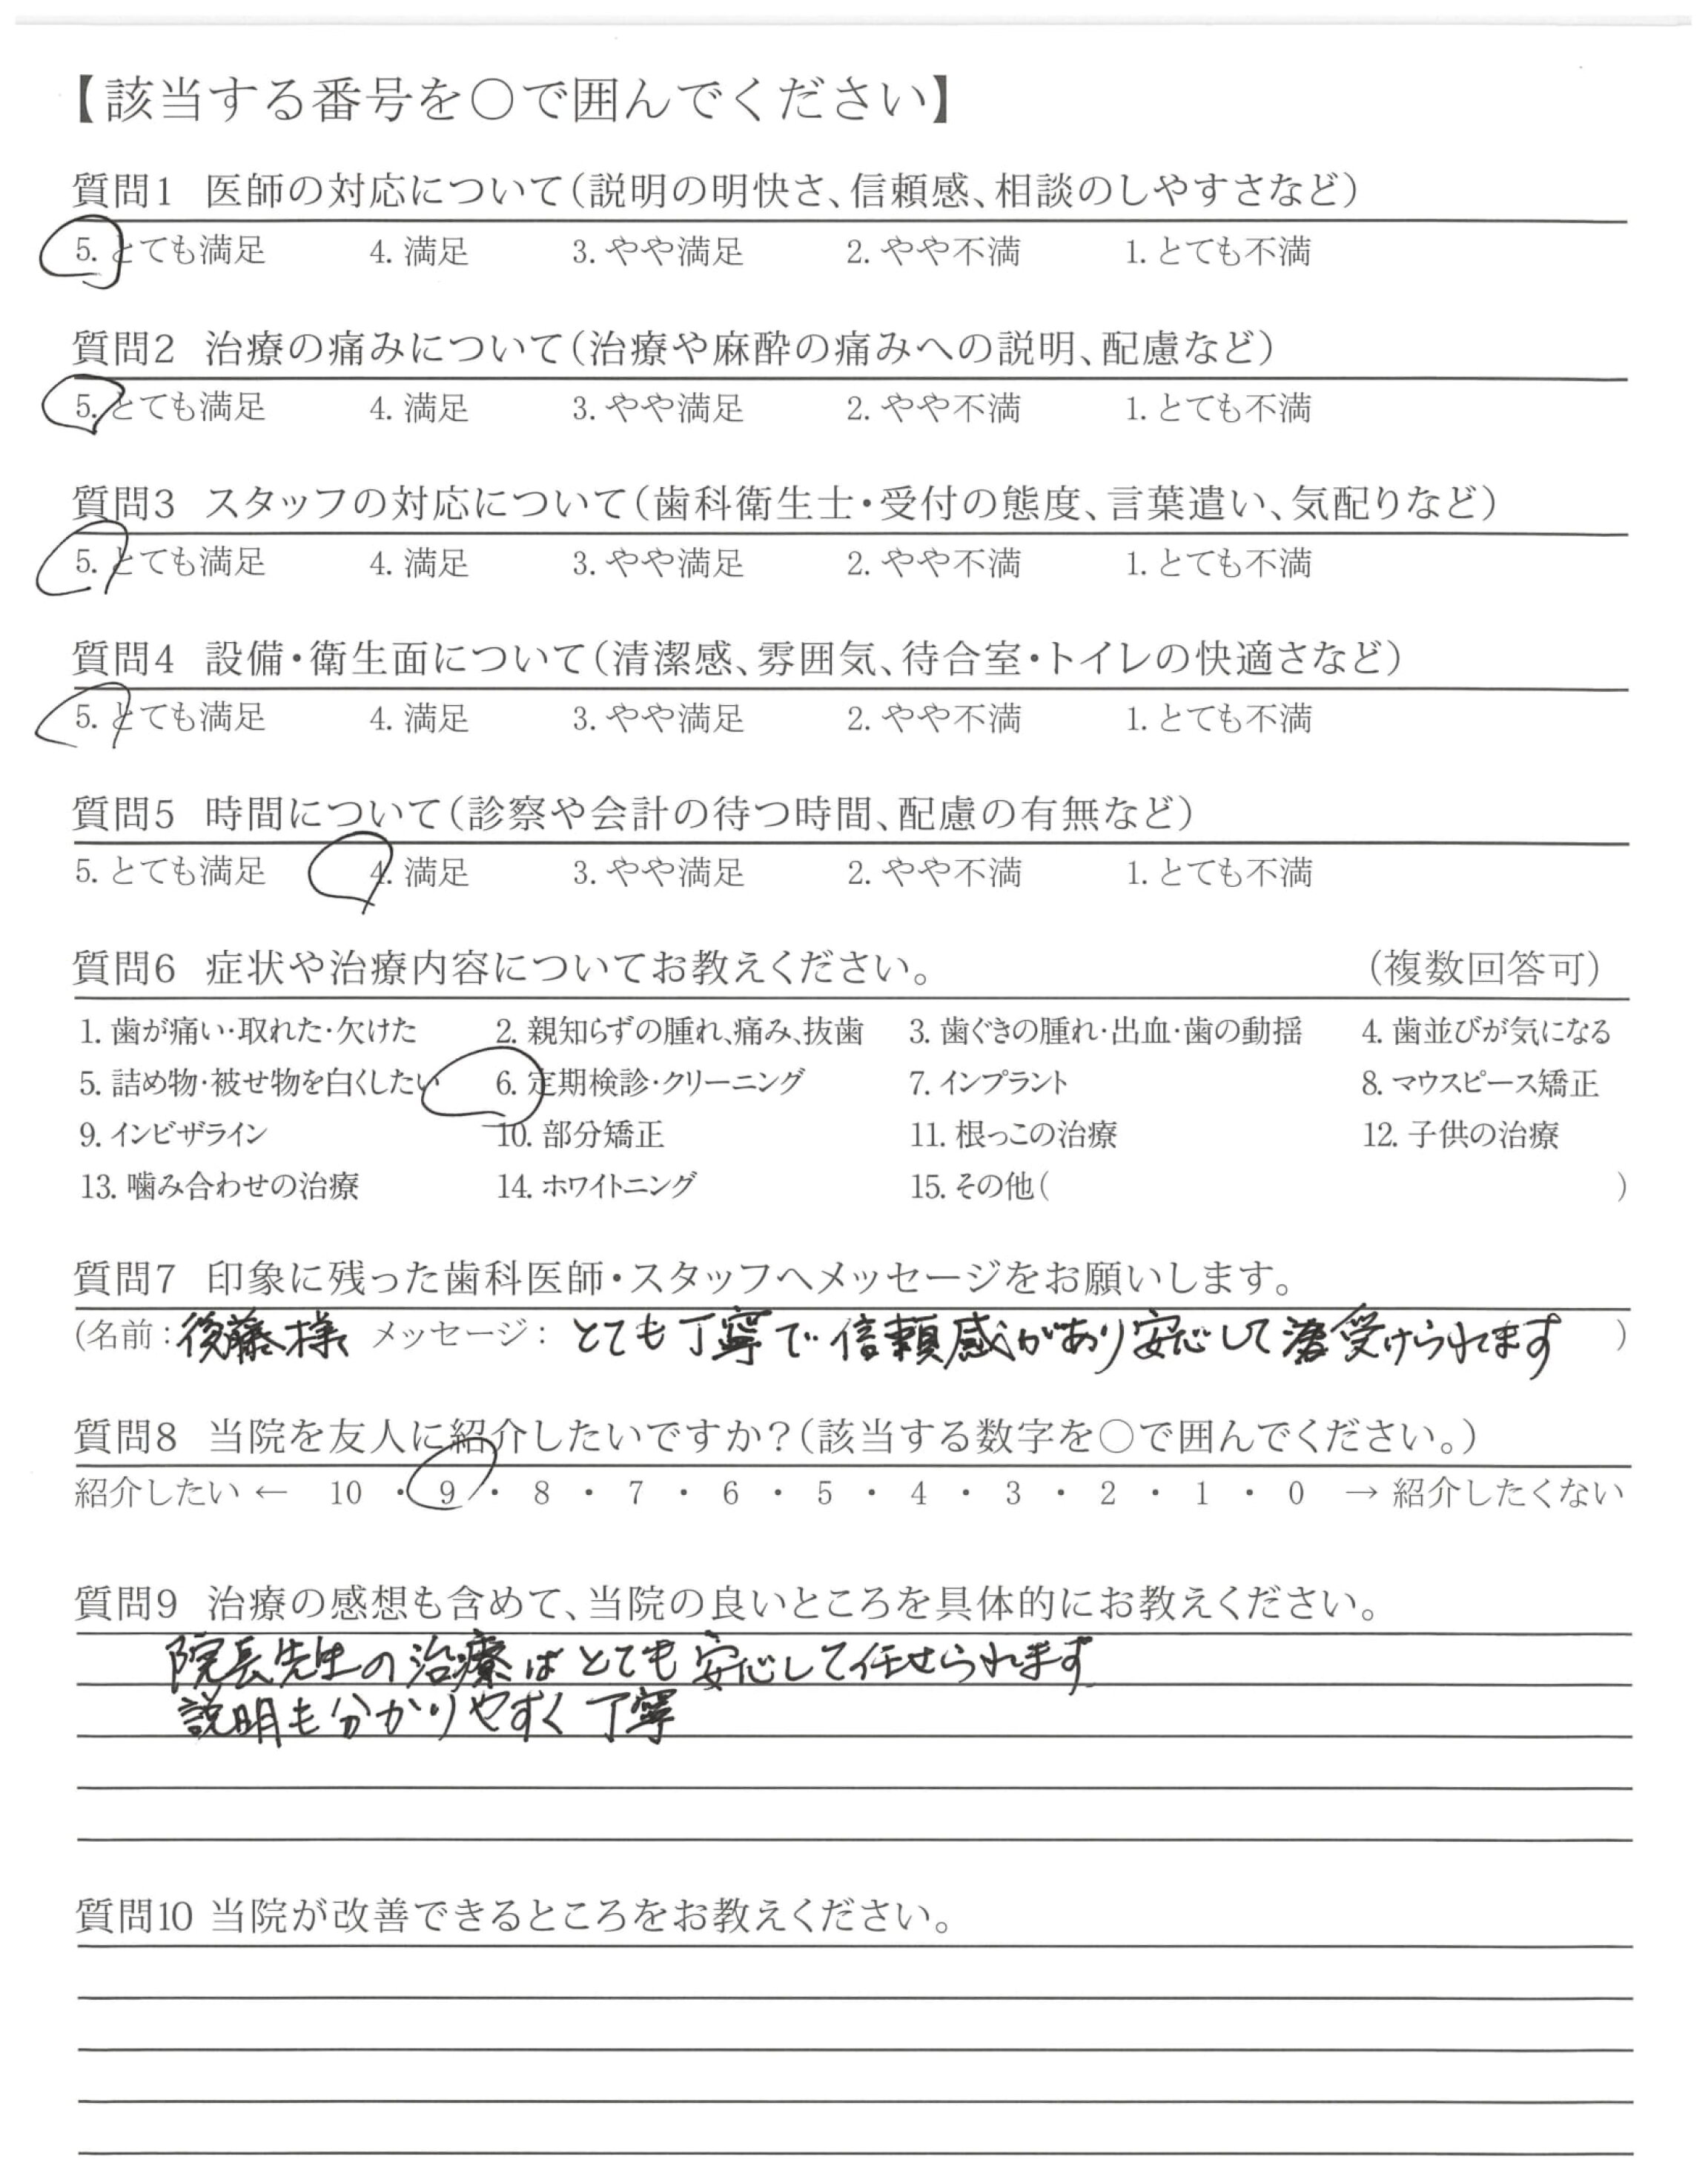 【該当する番号を○で囲んでください】
質問1 医師の対応について(説明の明快さ、信頼感、相談のしやすさなど)
5. とても満足 4. 満足 3. やや満足 2. やや不満 1. とても不満
質問2 治療の痛みについて(治療や麻酔の痛みへの説明、配慮など)
5. とても満足 4. 満足 3. やや満足 2. やや不満 1. とても不満
質問3 スタッフの対応について(歯科衛生士・受付の態度、言葉遣い、気配りなど)
5. とても満足 4. 満足 3. やや満足 2. やや不満 1. とても不満
質問4 設備・衛生面について(清潔感、雰囲気、待合室・トイレの快適さなど)
5. とても満足 4. 満足 3. やや満足 2. やや不満 1. とても不満
質問5 時間について(診察や会計の待つ時間、配慮の有無など)
5. とても満足 4. 満足 3. やや満足 2. やや不満 1. とても不満
質問6 症状や治療内容についてお教えください。 (複数回答可)
1. 歯が痛い・取れた・欠けた 2. 親知らずの腫れ、痛み、抜歯 3. 歯ぐきの腫れ・出血・歯の動揺 4. 歯並びが気になる
5. 詰め物・被せ物を白くしたい 6. 定期検診・クリーニング 7. インプラント 8. マウスピース矯正
9. インビザライン 10. 部分矯正 11. 根っこの治療 12. 子供の治療
13. 噛み合わせの治療 14. ホワイトニング 15. その他( )
質問7 印象に残った歯科医師・スタッフへメッセージをお願いします。
(名前:後藤様 メッセージ: とても丁寧で信頼感があり安心して受けられてます )
質問8 当院を友人に紹介したいですか?(該当する数字を○で囲んでください。)
紹介したい ← 10 ・ 9 ・ 8 ・ 7 ・ 6 ・ 5 ・ 4 ・ 3 ・ 2 ・ 1 ・ 0 → 紹介したくない
質問9 治療の感想も含めて、当院の良いところを具体的にお教えください。
院長先生の治療はとても安心して任せられます
説明も分かりやすく丁寧
質問10 当院が改善できるところをお教えください。